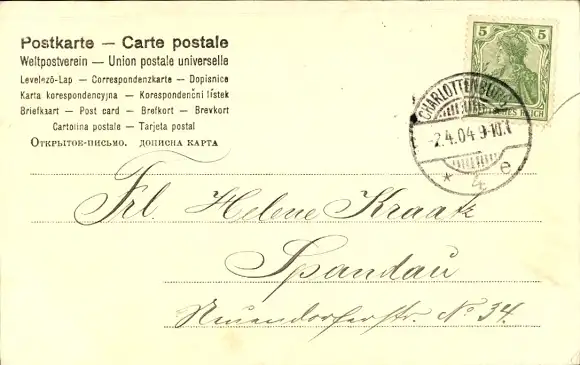 Postkarte — Carte postale
Weltpostverein — Union postale universelle
Levelező-Lap — Correspondenzkarte — Dopisnice
Karta korespondencyjna — Korespondenční lístek
Briefkaart — Post card — Brefkort — Brevkort
Cartolina postale — Tarjeta postal
Открытое-письмо. дописна карта
5 5
DEUTSCHES REICH
CHARLOTTENBURG
-2.4.04 9-10V.
* 4 e
Frl. Helene Kraatz
Spandau
Neuendorferstr. No 34.